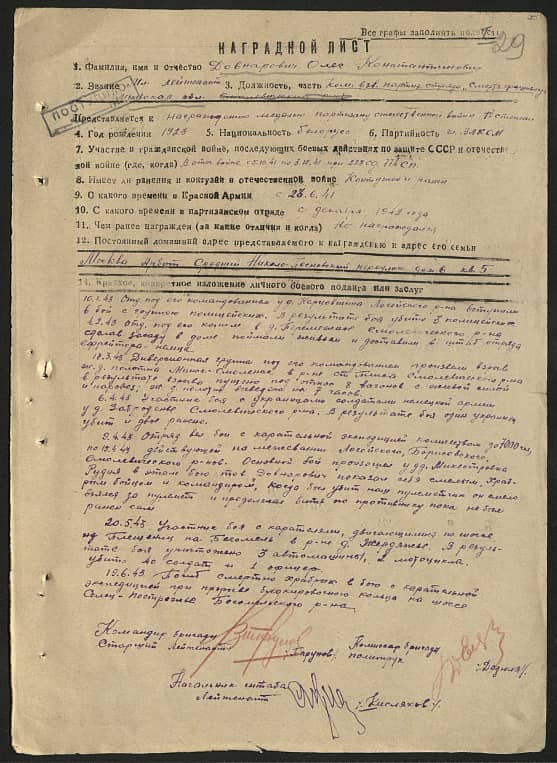 Все графы заполнять полностью
29
НАГРАДНОЙ ЛИСТ
1. Фамилия, имя и отчество Довнарович Олег Константинович
2. Звание мл. лейтенант 3. Должность, часть ком. взв. партиз. отряда „Смерть фашизму"
Представляется к награждению медалью партизану отечественной войны II степени
4. Год рождения 1923 5. Национальность белорус 6. Партийность чл. ВЛКСМ
7. Участие в гражданской войне, последующих боевых действиях по защите СССР и отечествен-
ной войне (где, когда) В отеч. войне с 5.10.41 по
8. Имеет ли ранения и контузии в отечественной войне
9. О какого времени в Красной Армии с 28.6.41
10. С какого времени в партизанском отряде с декабря 1942 года
11. Чем ранее награжден (за какие отличия и когда) Не награждался
12. Постоянный домашний адрес представляемого к награждению и адрес его семьи
Москва Арбат Средний Николо-Песковский переулок дом 6 кв. 5
14. Краткое, конкретное изложение личного боевого подвига или заслуг
10.1.43 Отд. под его командованием у д. Логойского р-на вступило
в бой с группой полицейских. В результате боя убито 3 полицейских
4.2.43 отд. под его команд. в д. Смолевичского р-на
сделав засаду в доме поймали живым и доставили в штаб отряда
ефрейтора немца.
18.3.43 Диверсионная группа под его командованием произвели взрыв
ж.д. полотна Минск-Смоленск в р-не ст. Смолевичского р-на
в результате взрыва пущено под откос 8 вагонов с живой силой
и паровоз, ж.д. полотно выведено на 7 часов.
6.4.43 Участник боя с украинцами солдатами немецкой армии
у д. Заброденье Смолевичского р-на. В результате боя один украинец
убит и две ранено.
9.4.43 Отряд вел бой с карательной экспедицией количеством до 7000 чел.
по 15.4.43 действующей на межевании Логойского, Борисовского,
Смолевичского р-нов. Основной бой произошел у д.д. Микестровка
Рудня в этом бою тов Довнарович показал себя смелым, храб-
рым бойцом и командиром, когда был убит наш пулеметчик он смело
бился за пулемет и продолжал бить по противнику пока не был
ранен сам
20.5.43 Участник боя с карателями, двигающимися по шоссе
из Плещениц на Бегомель в р-не д. Жердяжье. В резуль-
тате боя уничтожено 3 автомашины, 2 мотоцикла.
убито 40 солдат и 1 офицер.
19.6.43 Погиб смертью храбрых в бою с карательной
экспедицией при прорыве блокировского кольца на шоссе
Селец-Пострежье Бегомльского р-на.
Командир бригады
Старший лейтенант /Тарунов/
Комиссар бригады
политрук /Дедюля/.
Начальник штаба
Лейтенант /Кисляков/.